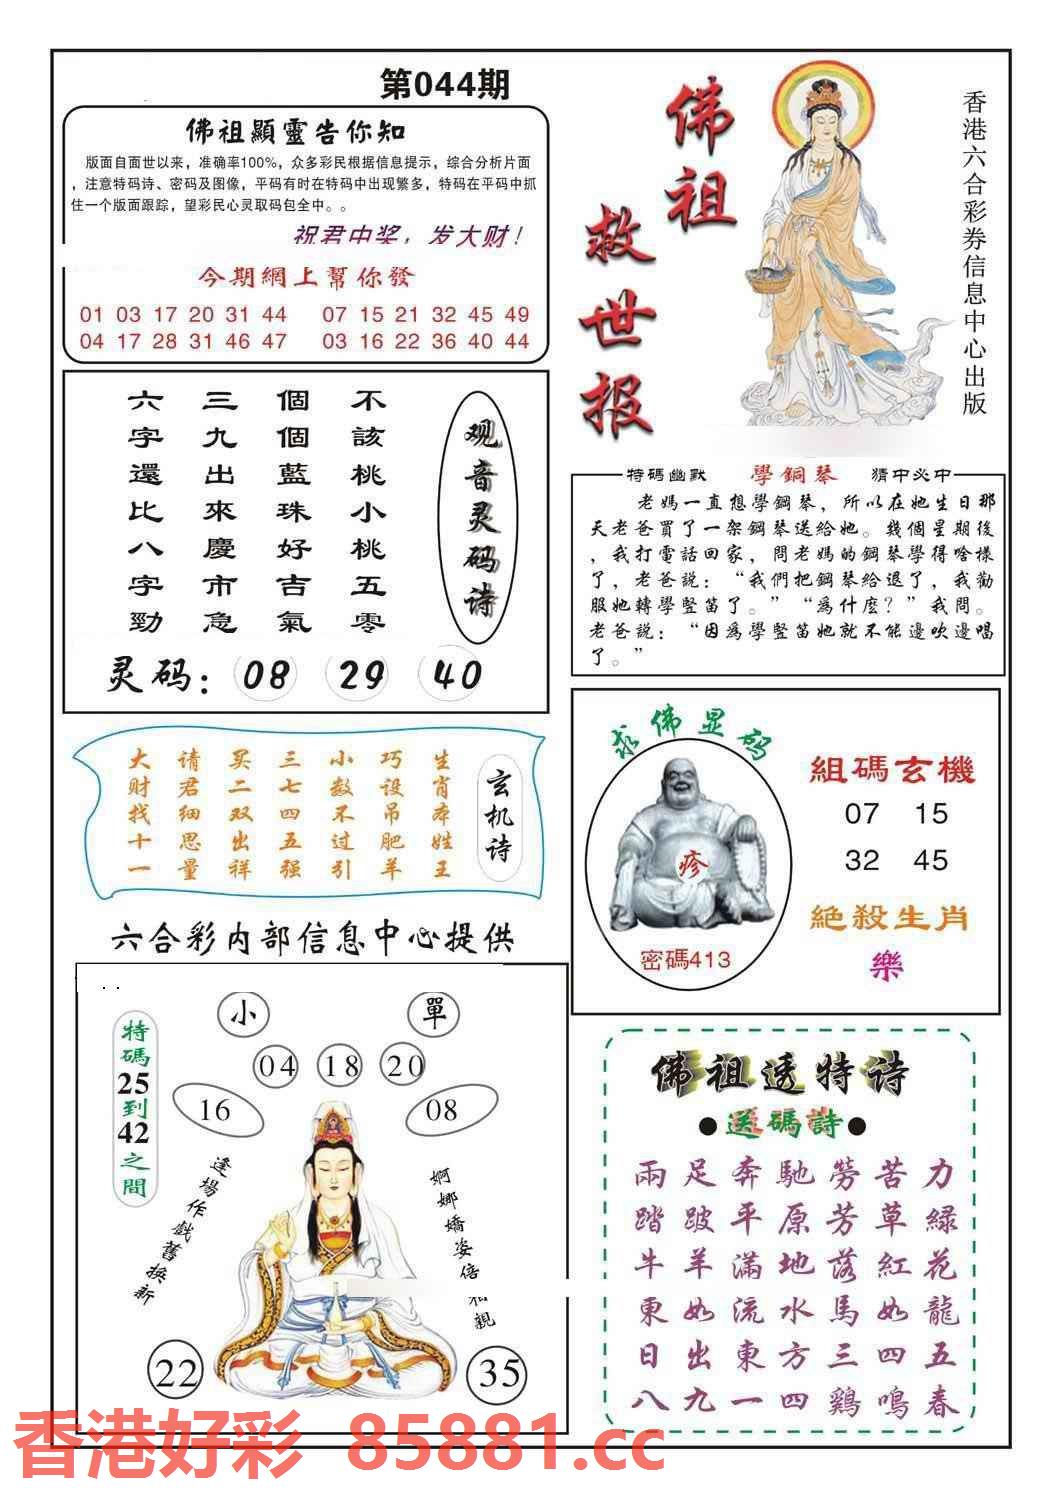 第044期
佛祖顯靈告你知
版面自面世以来，准确率100%，众多彩民根据信息提示，综合分析片面
，注意特码诗、密码及图像，平码有时在特码中出现繁多，特码在平码中抓
住一个版面跟踪，望彩民心灵取码包全中。。
祝君中奖，发大财！
今期網上幫你發
01 03 17 20 31 44 07 15 21 32 45 49
04 17 28 31 46 47 03 16 22 36 40 44
佛祖
救世报
香港六合彩券信息中心出版
观音灵码诗
不該桃小桃五零
個個藍珠好吉氣
三九出來慶市急
六字還比八字勁
灵码：08 29 40
特碼幽默 學鋼琴 猜中必中
老媽一直想學鋼琴，所以在她生日那
天老爸買了一架鋼琴送給她。幾個星期後
，我打電話回家，問老媽的鋼琴學得啥樣
了，老爸説：“我們把鋼琴給退了，我勸
服她轉學豎笛了。”“爲什麽？”我問。
老爸説：“因爲學豎笛她就不能邊吹邊唱
了。”
玄机诗
生肖本姓王
巧设吊肥羊
小数不过引
三七四五强
买二双出祥
请君细思量
大财找十一
求佛显码
疹
密碼413
組碼玄機
07 15
32 45
絕殺生肖
樂
六合彩内部信息中心提供
小 單
04 18 20
16 08
特碼25到42之間
逢場作戲舊换新
婀娜嬌姿倍相親
22 35
佛祖透特诗
●送碼詩●
兩足奔馳勞苦力
踏跛平原芳草緑
牛羊滿地落紅花
東如流水馬如龍
日出東方三四五
八九一四鷄鳴春
香港好彩 85881.cc